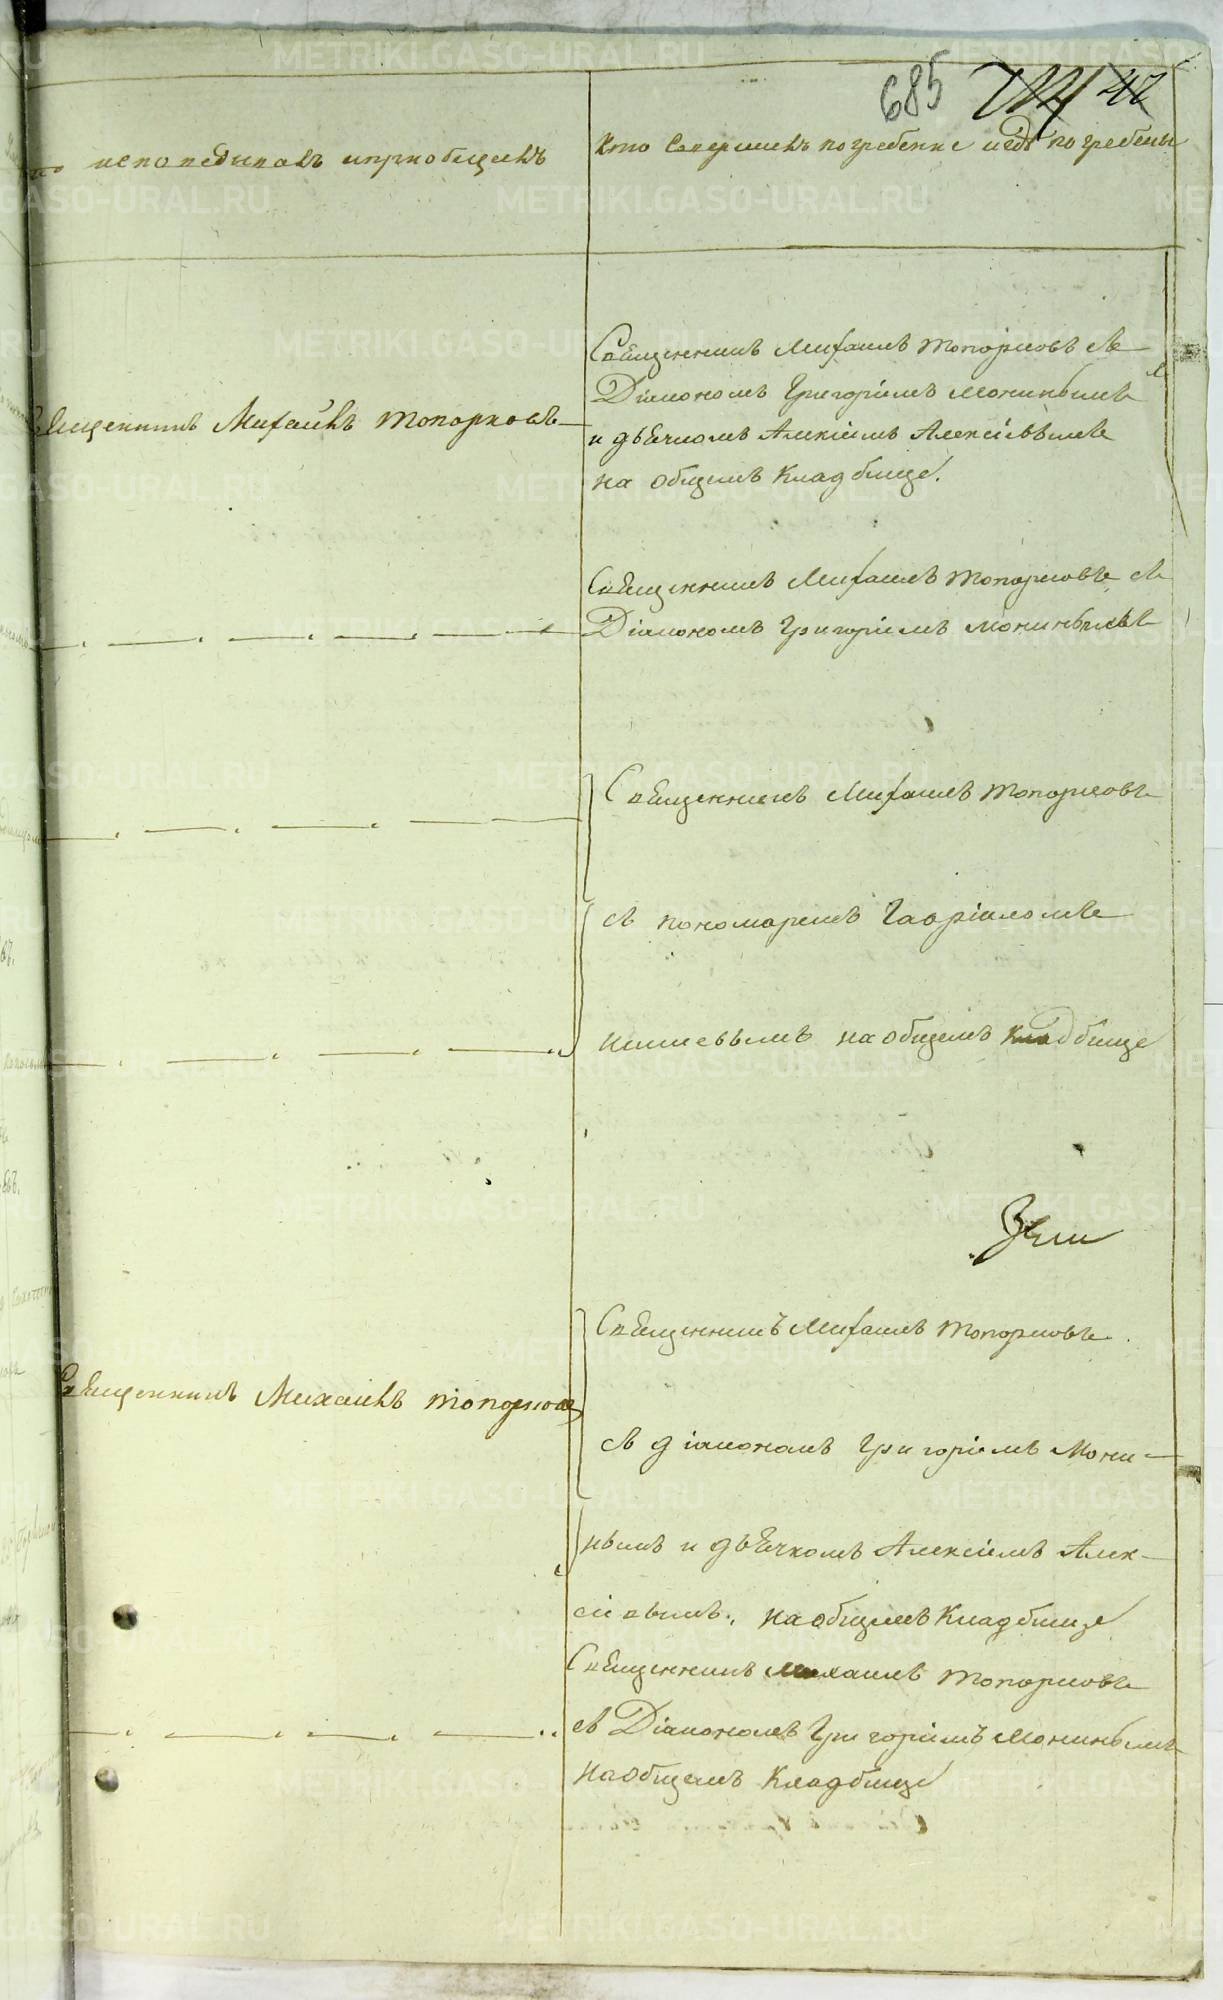 685
исповѣдывалъ и пріобщилъ
Кто совершилъ погребеніе и гдѣ погребены
Священникъ Михаилъ Топорковъ
Священникъ Михаилъ Топорковъ съ
Діакономъ Григоріемъ Мокинымъ
и дьячкомъ Алексіемъ Алексіевымъ
на общемъ Кладбище.
Священникъ Михаилъ Топорковъ съ
Діакономъ Григоріемъ Мокинымъ
Священникъ Михаилъ Топорковъ
съ пономаремъ Гавріиломъ
на общемъ Кладбище
Священникъ Михаилъ Топорковъ
Священникъ Михаилъ Топорковъ
съ діакономъ Григоріемъ Моки-
нымъ и дьячкомъ Алексіемъ Алек-
сіевымъ. на общемъ Кладбище
Священникъ Михаилъ Топорковъ
съ Діакономъ Григоріемъ Мокинымъ
на общемъ Кладбище
METRIKI.GASO-URAL.RU